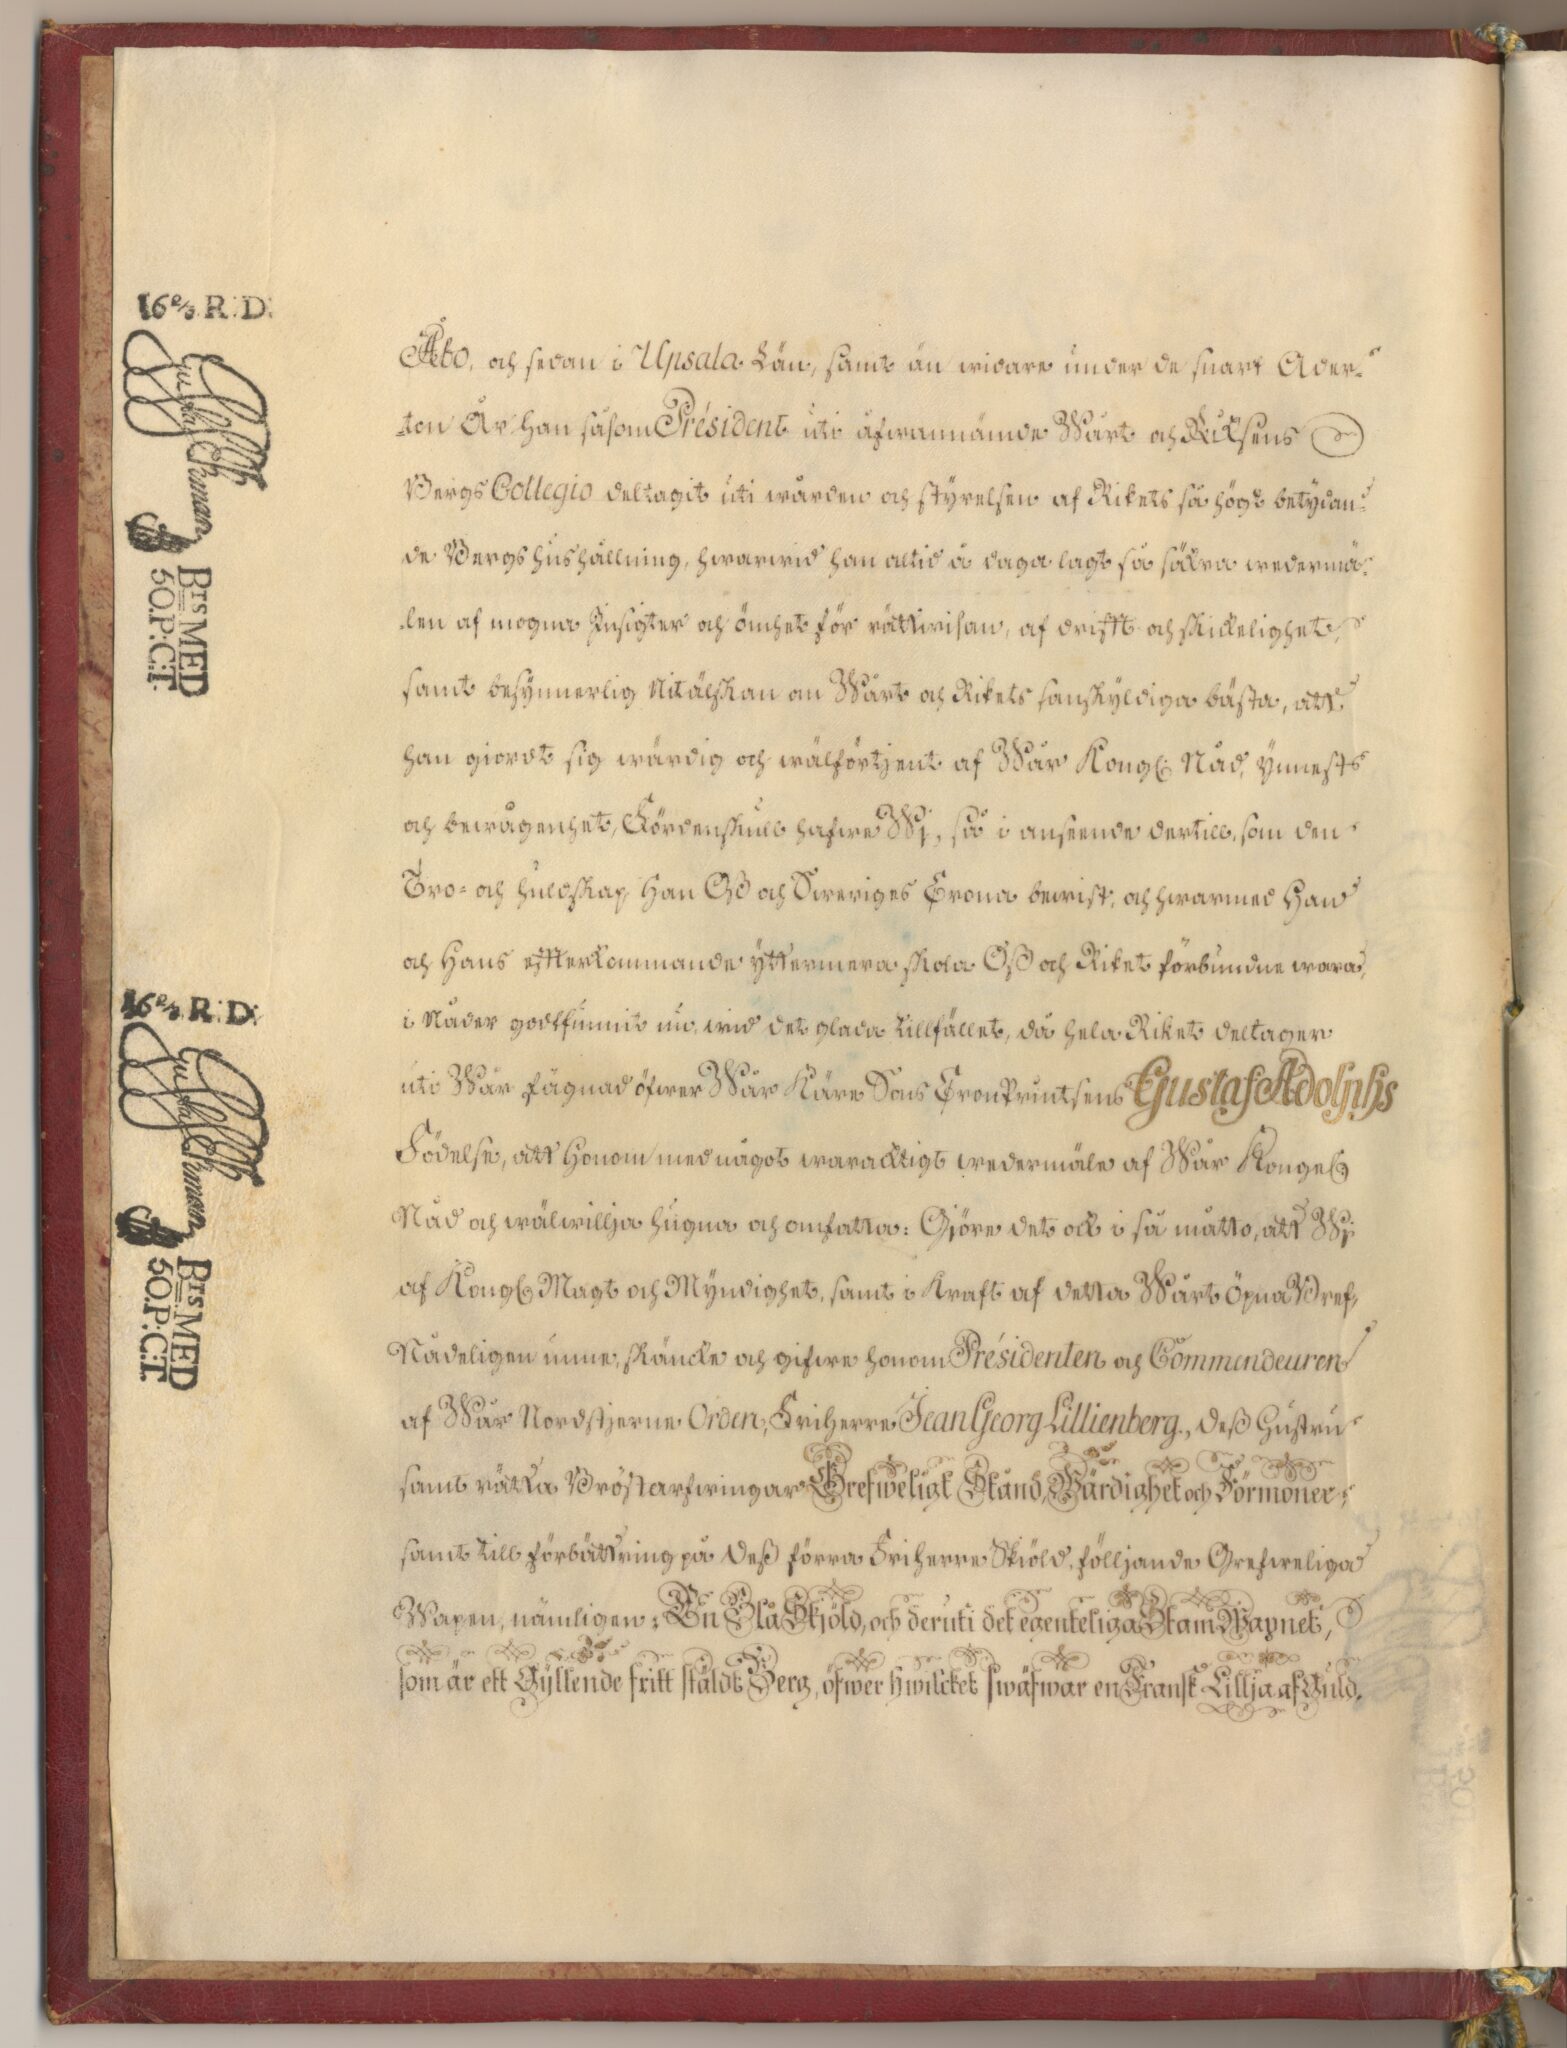 16 2/3 R: D:
Brs MED
50.P:C:T.
16 2/3 R: D:
Brs MED
50.P:C:T.
Åbo, och sedan i Upsala Län, samt än widare under de snart Ader-
-ton År han såsom Président uti åfwannämde Wårt och Riksens
Bergs Collegio deltagit uti wården och styrelsen af Rikets så högt betydan-
de Bergshushållning, hwarwid han altid å daga lagt så säkra wedermä-
-len af mogna Insigter och ömhet för rättwisan, af drifft och skickelighet,
samt besynnerlig Nitälskan om Wårt och Rikets sanskyldiga bästa, att
han giordt sig wärdig och wälförtjent af Wår Kongl. Nåd, Ynnest
och bewågenhet, Fördenskull hafwe Wj, så i anseende dertill, som den
Tro- och huldskap, Han Oß och Sweriges Crona bewist, och hwarmed Han
och Hans effterkommande yttermera skola Oß och Riket förbundne wara,
i Nåder godtfunnit nu, wid det glada tillfället, då hela Riket deltager
uti Wår fägnad öfwer Wår Käre Sons CronPrintsens Gustaf Adolphs
Födelse, att Honom med något waracktigt wedermäle af Wår Kongel.
Nåd och wälwillja hugna och omfatta: Gjöre det ock i så måtto, att Wj
af Kongl. Magt och Myndighet, samt i Kraft af detta Wårt öpna Bref,
Nådeligen unne, skäncke och gifwe honom Présidenten och Commendeuren
af Wår Nordstjerne Orden, Friherre Jean Georg Lillienberg., deß Hustru
samt rätta Bröstarfwingar Grefweligt Stånd, Wärdighet och Förmoner;
samt till förbättring på deß förra Friherre Skiöld, följande Grefweliga
Wapen, nämligen: En Blå Skjöld, och deruti det egenteliga StamWapnet,
som är ett Gyllende fritt ståldt Berg, öfwer hwilcket swäfwar en Fransk Lillja af Guld.